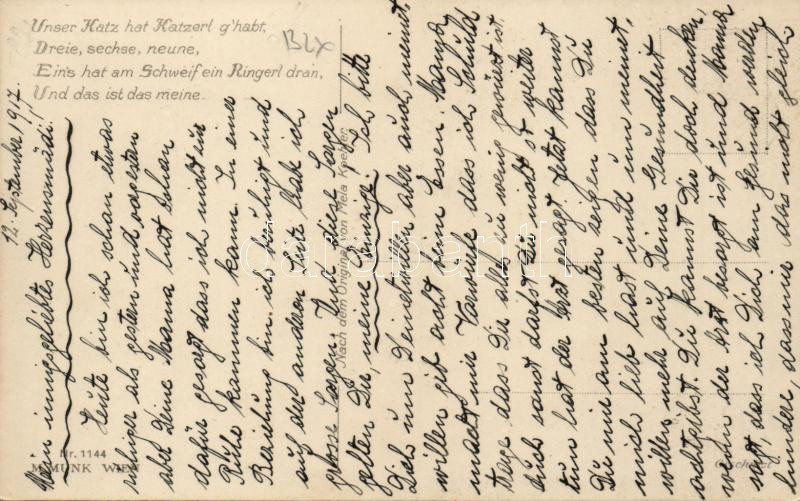 Unser Katz hat Katzerl g'habt,
Dreie, sechse, neune,
Ein's hat am Schweif ein Ringerl dran,
Und das ist das meine.
BLX
12. September 1917.
Mein innigsgeliebtes Herzensmädi!
Heute bin ich schon etwas
ruhiger als gestern und vorgestern
aber Deine Mama hat schon
dafür gesorgt dass ich nicht zur
Ruhe kommen kann. In einer
Beziehung bin ich beruhigt und
auf der anderen Seite habe ich
grosse Sorgen. Und diese Sorgen
gelten Dir, meine Einzige. Ich bitte
Dich um Deinetwillen aber auch meinet-
willen gib acht beim Essen. Mama
macht mir Vorwürfe dass ich Schuld
trage dass Du alles zu wenig gewürzt ist
auch sonst darfst Du nicht so weiter
tun hat der Arzt gesagt. Jetzt kannst
Du mir am besten zeigen dass Du
mich lieb hast und um meinet-
willen mehr auf Deine Gesundheit
achtgibst. Du kannst Dir doch denken,
wenn der Arzt besorgt ist und Mama
sagt, dass ich Dich zum gesund werden
hindere, dass mir das nicht gleich
Nach dem Original von Mela Koehler
Nr. 1144
M. MUNK WIEN
Gesch.
darabanth